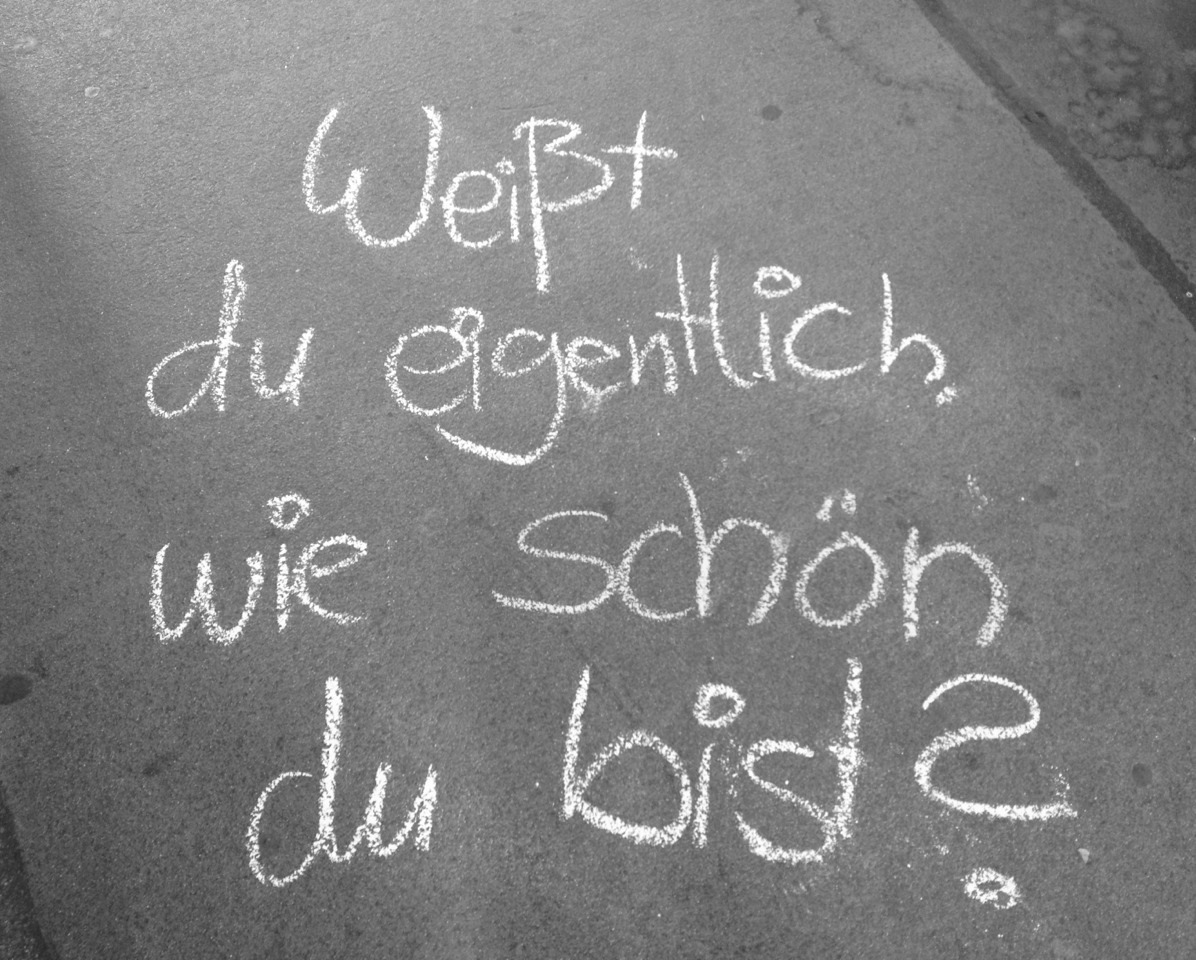 Weißt
du eigentlich,
wie schön
du bist?